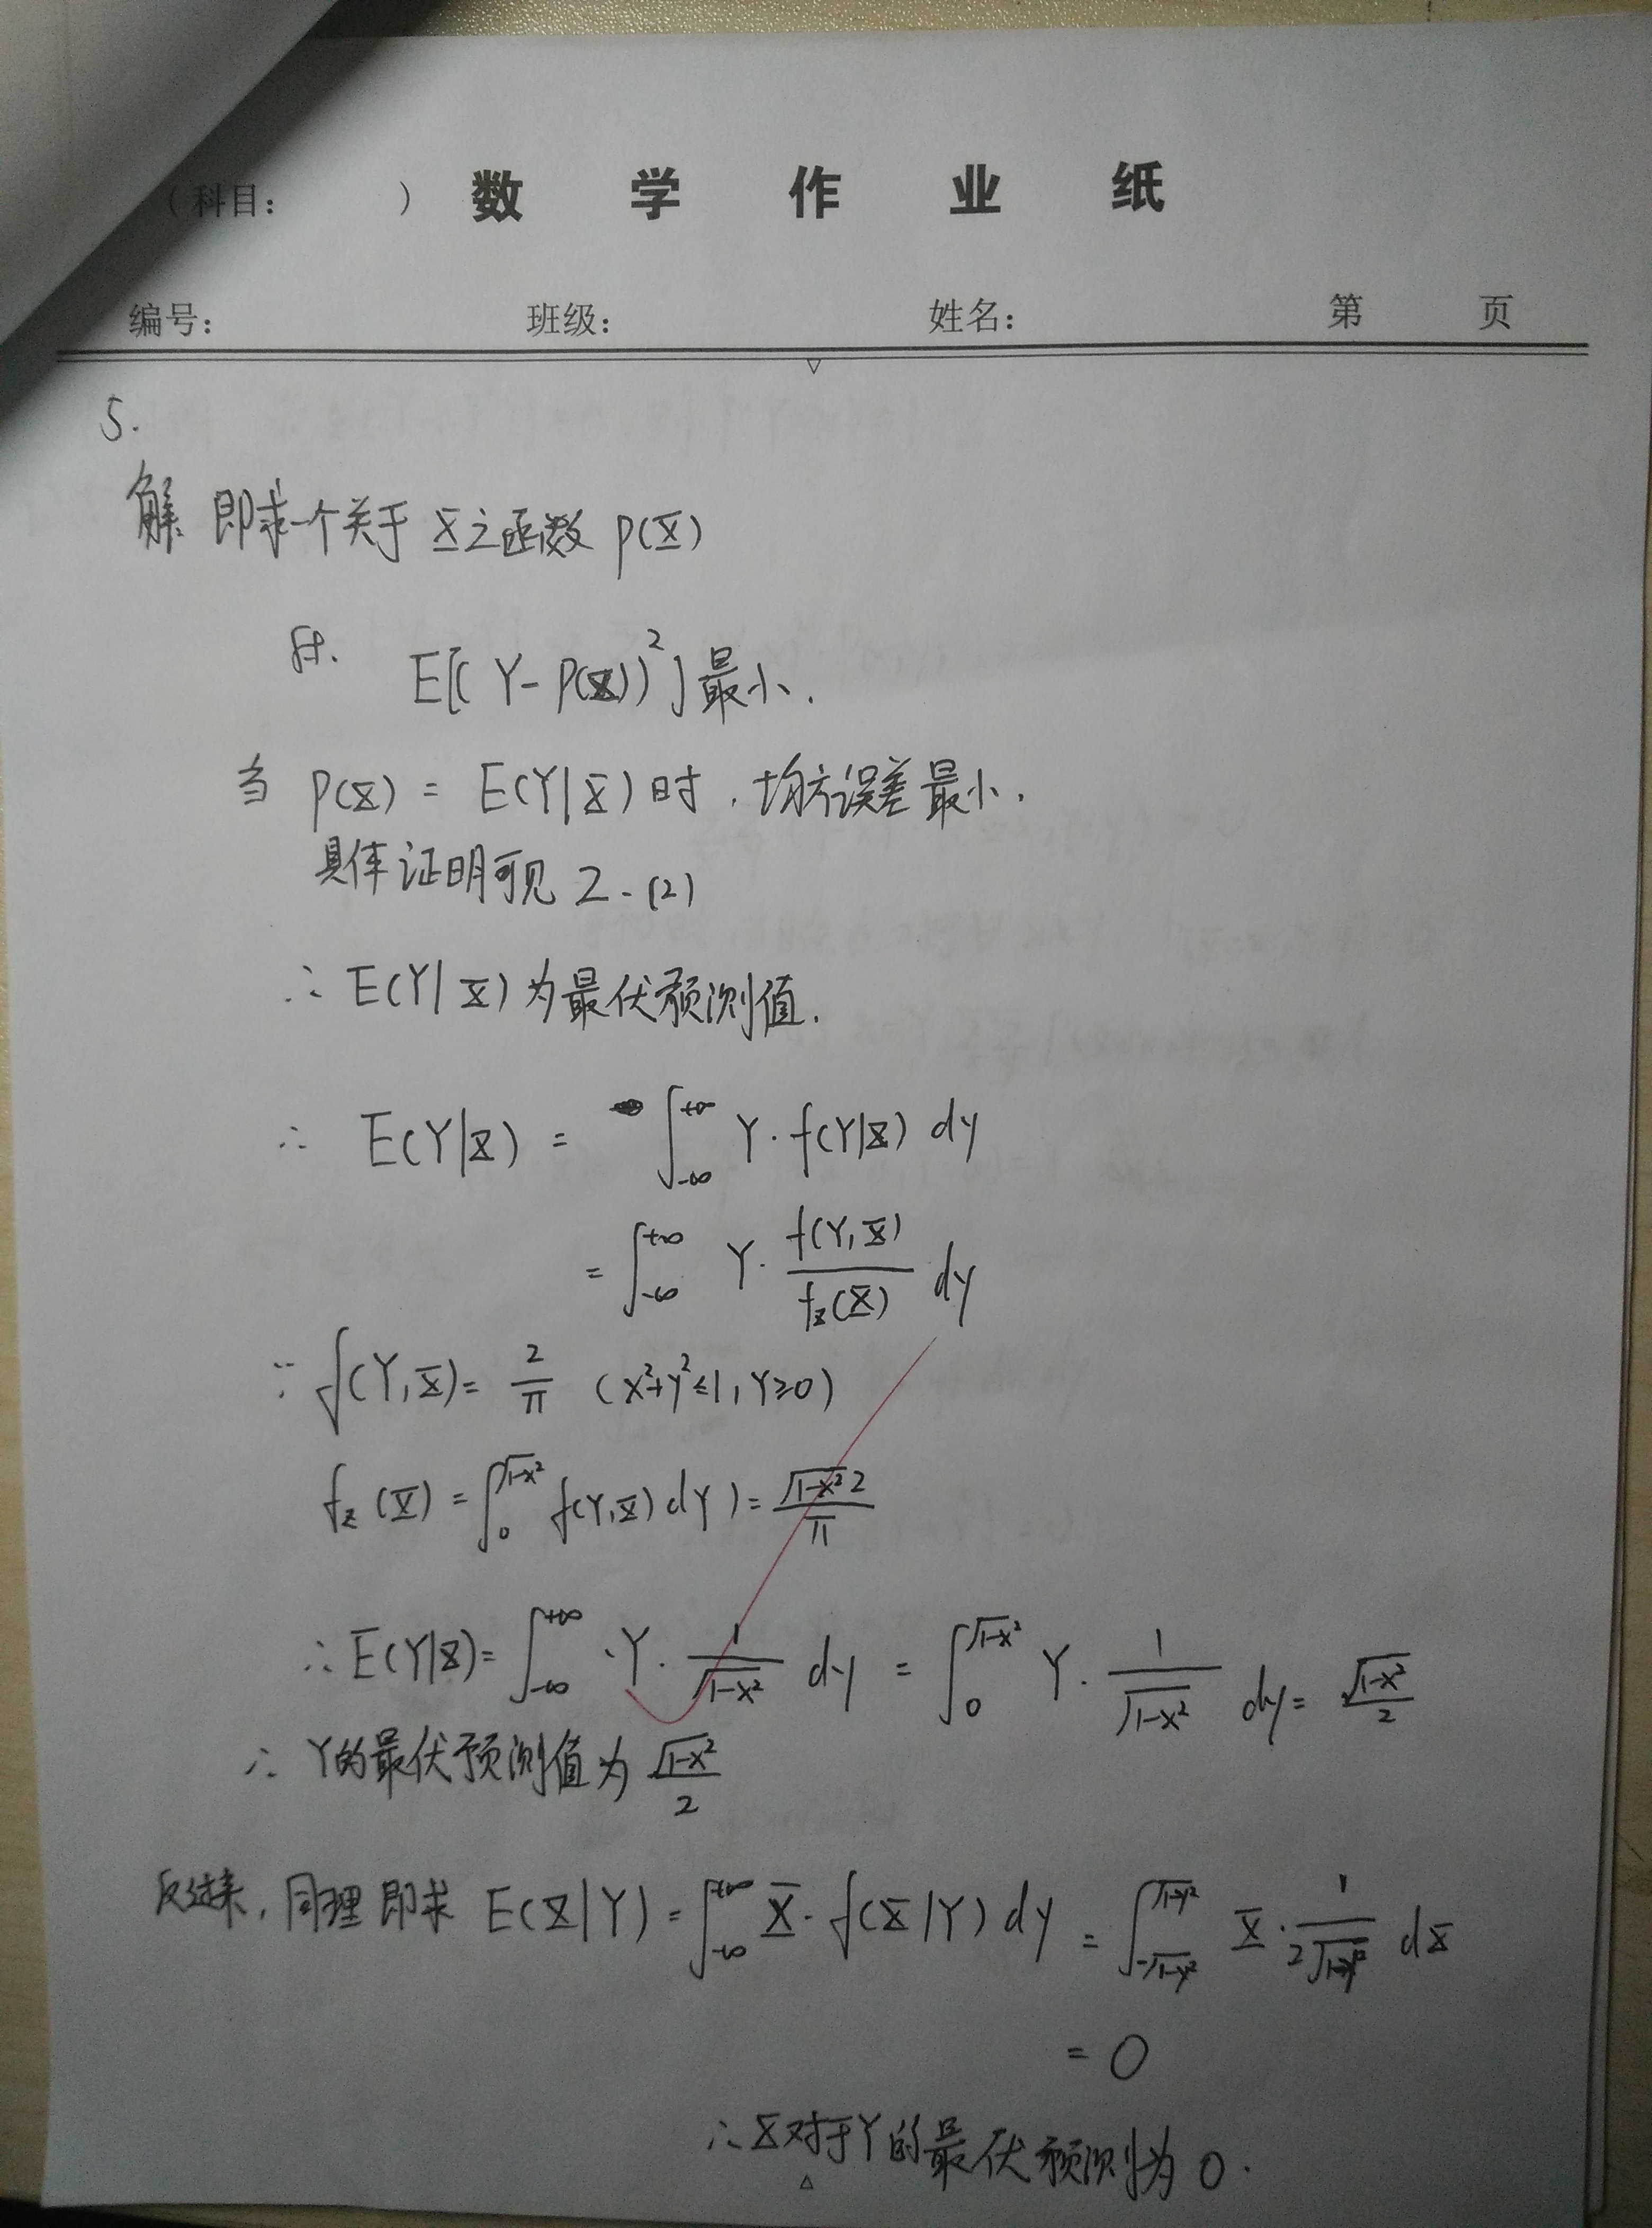 (科目: ) 数 学 作 业 纸
编号: 班级: 姓名: 第 页
5.
解 即求一个关于 X 之函数 P(X)
使. E[(Y-P(X))²]最小.
当 P(X) = E(Y|X)时，均方误差最小.
具体证明可见 2-(2)
∴ E(Y|X)为最优预测值.
∴ E(Y|X) = ∫_{-∞}^{+∞} Y·f(Y|X) dy
= ∫_{-∞}^{+∞} Y· f(Y,X)/f_X(X) dy
∵ f(Y,X) = 2/π (x²+y²≤1, Y≥0)
f_X(X) = ∫_0^{√(1-x²)} f(Y,X) dY) = √(1-x²) 2/π
∴ E(Y|X) = ∫_{-∞}^{+∞} ·Y· 1/√(1-x²) dy = ∫_0^{√(1-x²)} Y· 1/√(1-x²) dy = √(1-x²)/2
∴ Y的最优预测值为 √(1-x²)/2
反过来，同理即求 E(X|Y) = ∫_{-∞}^{+∞} X·f(X|Y) dy = ∫_{-√(1-y²)}^{√(1-y²)} X· 1/(2√(1-y²)) dX
= 0
∴ X对于Y的最优预测为 0.